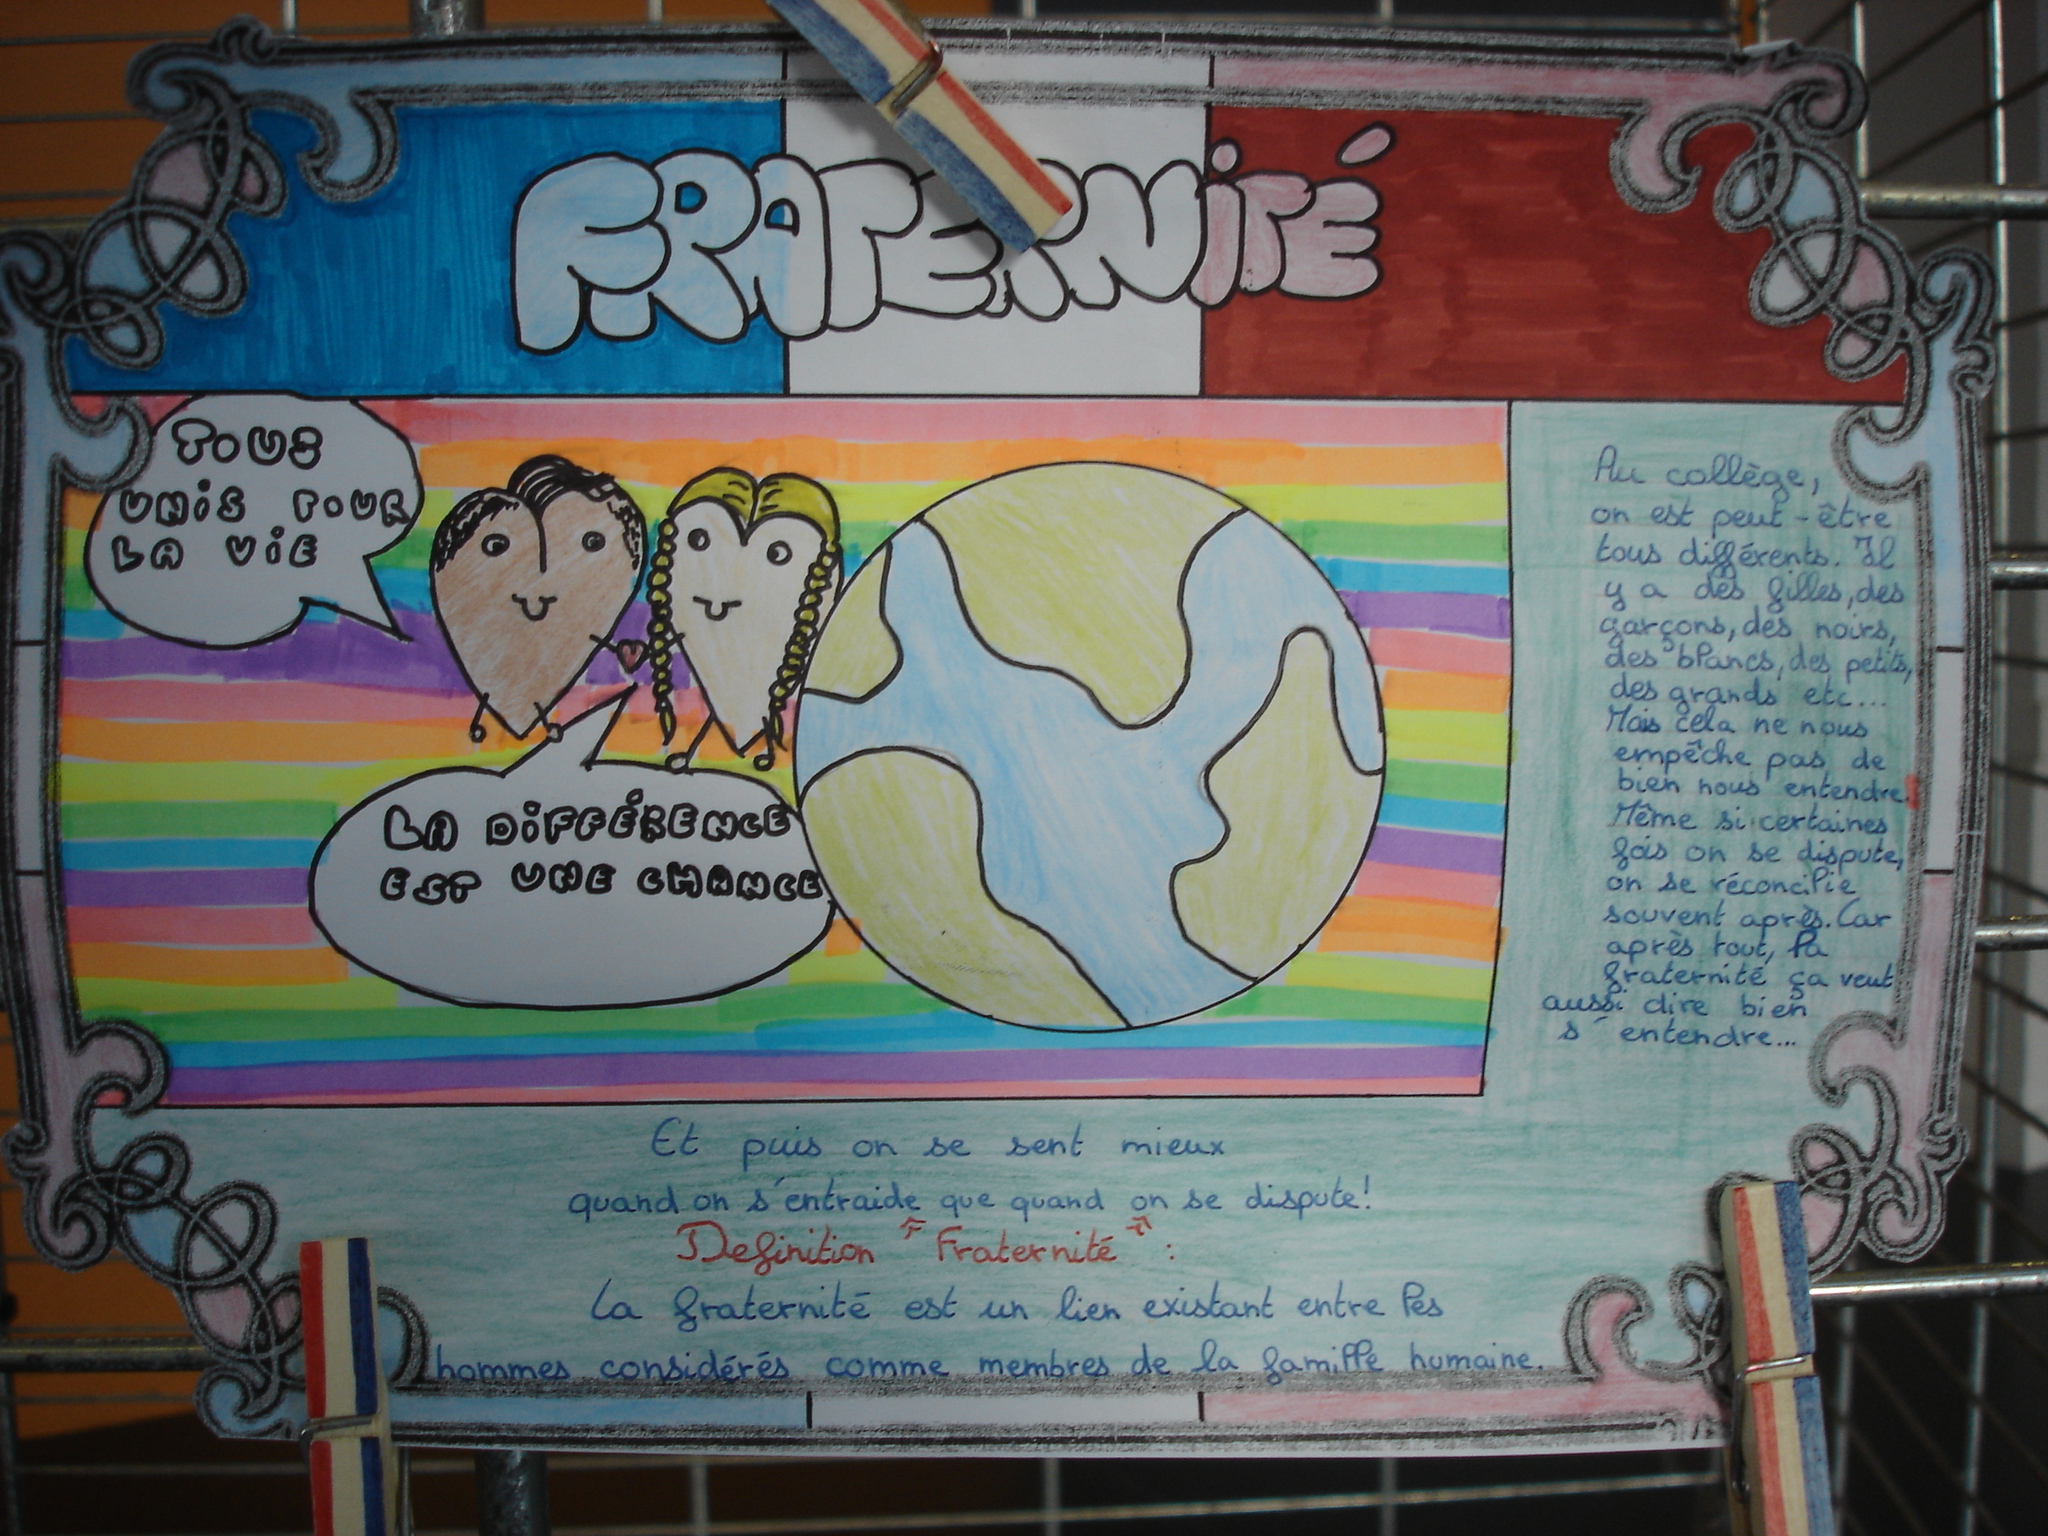 FRATERNITÉ
TOUS
UNIS POUR
LA VIE
LA DIFFÉRENCE
EST UNE CHANCE
Au collège,
on est peut-être
tous différents. Il
y a des filles, des
garçons, des noirs,
des blancs, des petits,
des grands etc...
Mais cela ne nous
empêche pas de
bien nous entendre.
Même si certaines
fois on se dispute,
on se réconcilie
souvent après. Car
après tout, la
fraternité ça veut
aussi dire bien
s'entendre...
Et puis on se sent mieux
quand on s'entraide que quand on se dispute!
Definition "Fraternité" :
La fraternité est un lien existant entre les
hommes considérés comme membres de la famille humaine.